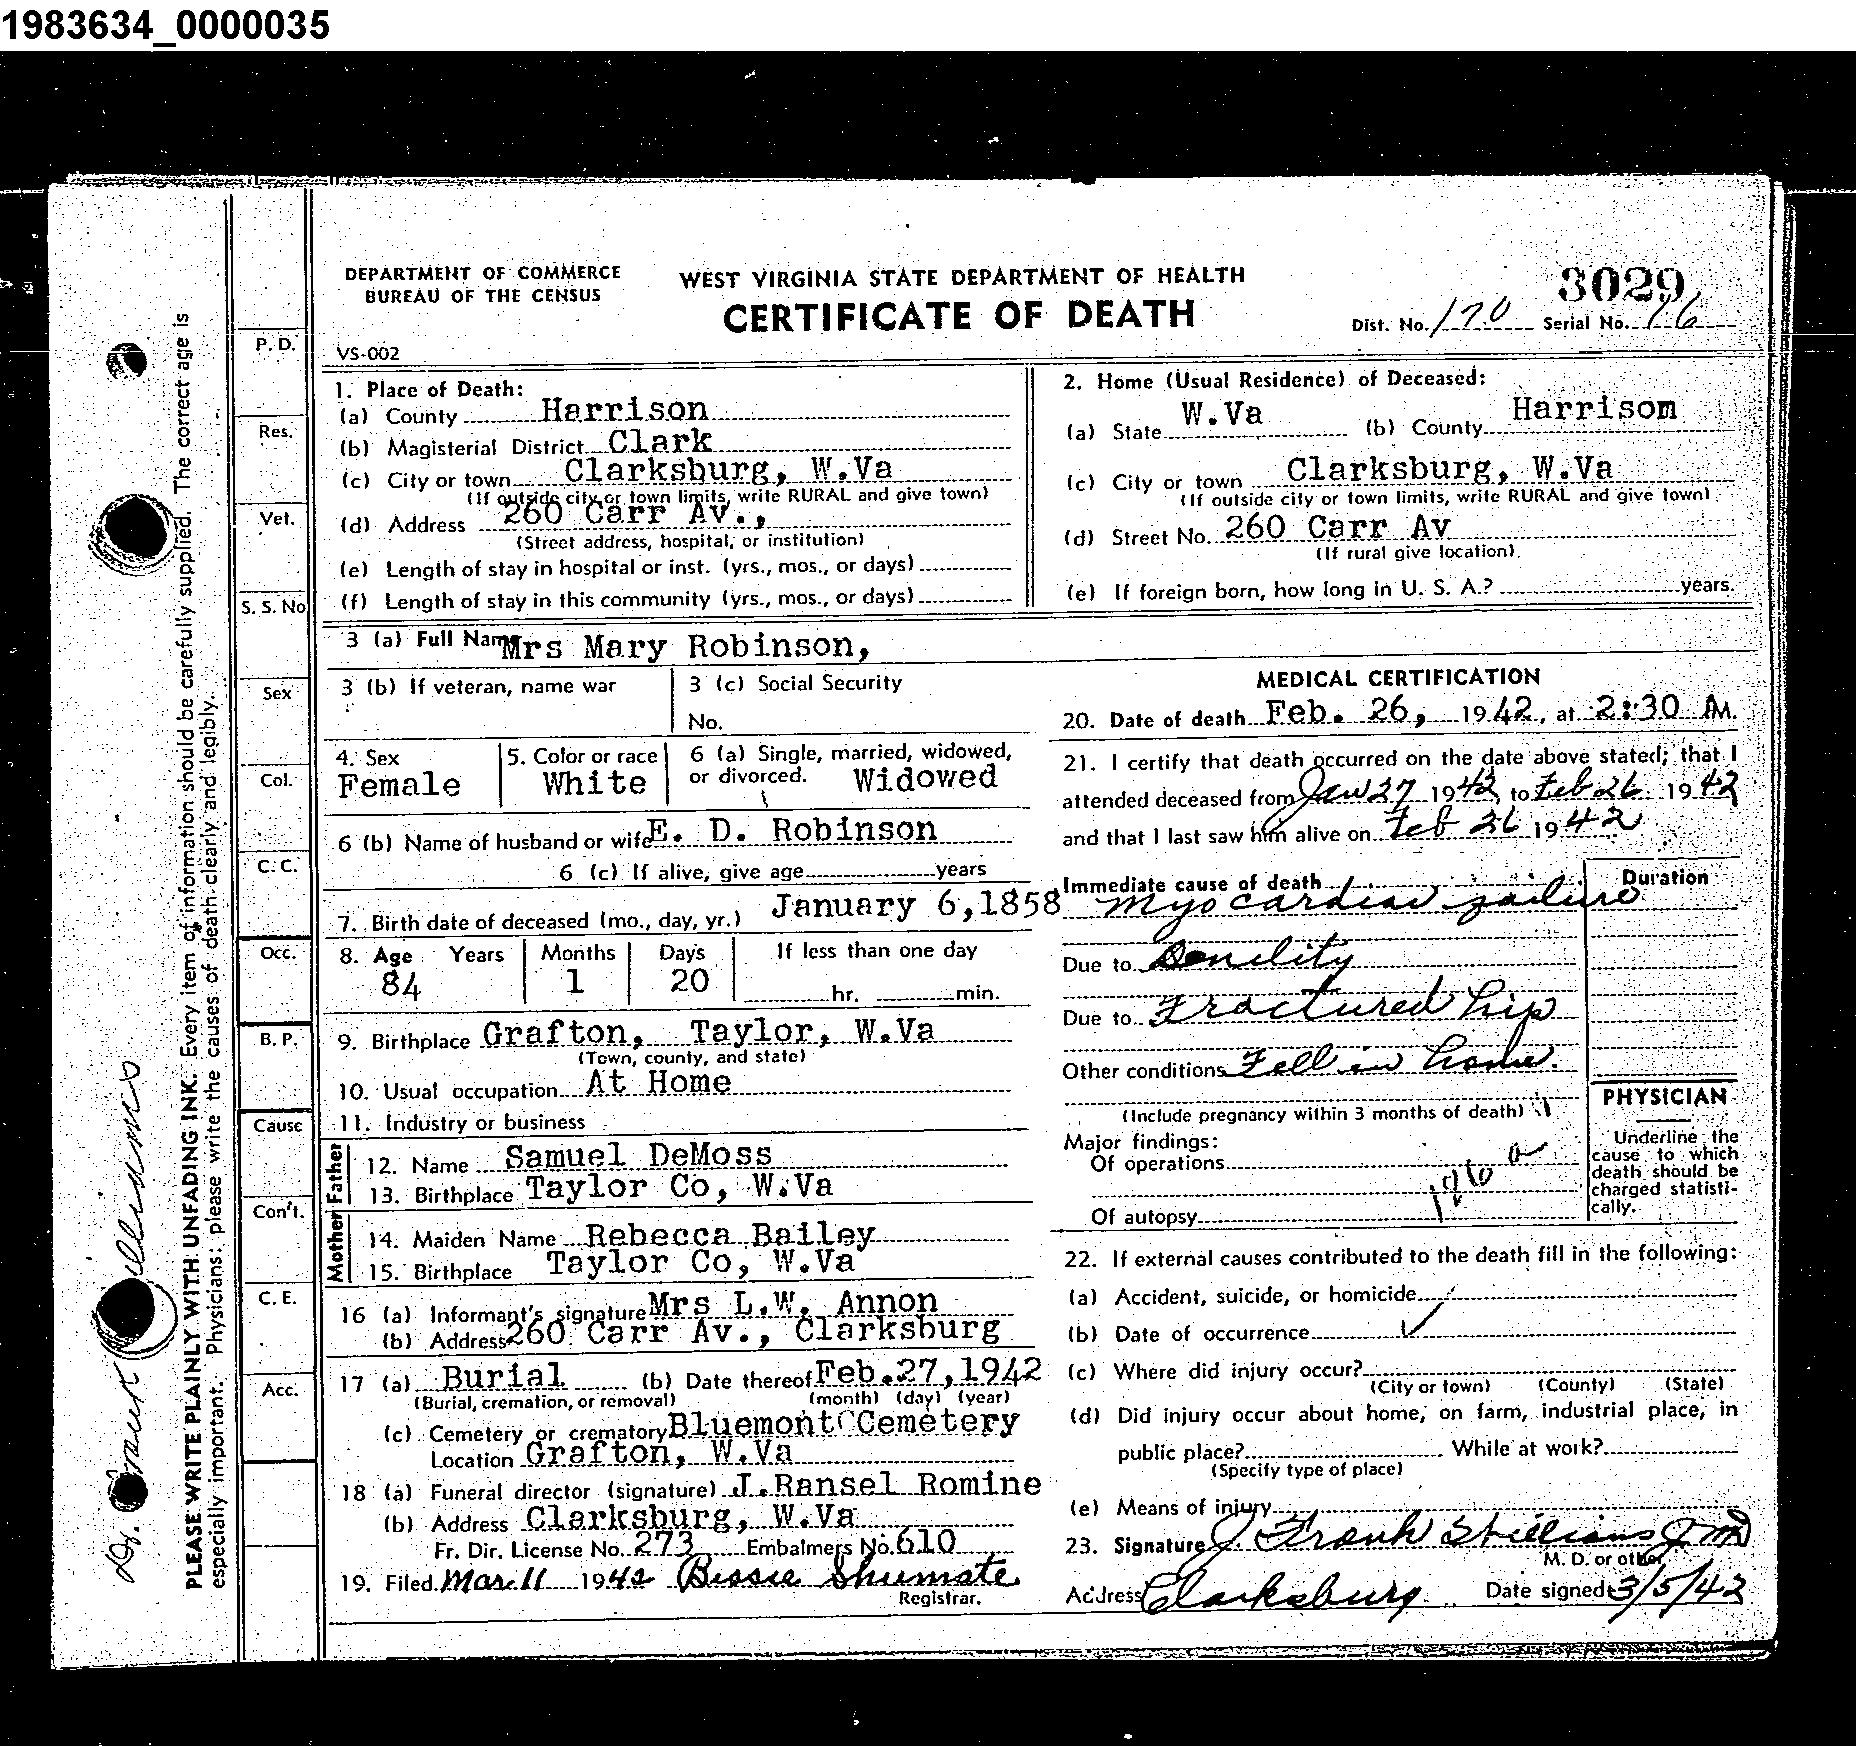 1983634_0000035
DEPARTMENT OF COMMERCE
BUREAU OF THE CENSUS
WEST VIRGINIA STATE DEPARTMENT OF HEALTH
CERTIFICATE OF DEATH
3029
Dist. No. 170 Serial No. 76
VS-002
1. Place of Death:
(a) County Harrison
(b) Magisterial District Clark
(c) City or town Clarksburg, W.Va
(If outside city or town limits, write RURAL and give town)
(d) Address 260 Carr Av.,
(Street address, hospital, or institution)
(e) Length of stay in hospital or inst. (yrs., mos., or days)
(f) Length of stay in this community (yrs., mos., or days)
2. Home (Usual Residence) of Deceased:
(a) State W.Va (b) County Harrison
(c) City or town Clarksburg, W.Va
(If outside city or town limits, write RURAL and give town)
(d) Street No. 260 Carr Av
(If rural give location)
(e) If foreign born, how long in U. S. A.? years.
3 (a) Full Name Mrs Mary Robinson,
3 (b) If veteran, name war
3 (c) Social Security
No.
4. Sex
Female
5. Color or race
White
6 (a) Single, married, widowed,
or divorced. Widowed
6 (b) Name of husband or wife E. D. Robinson
6 (c) If alive, give age years
7. Birth date of deceased (mo., day, yr.) January 6,1858
8. Age Years Months Days If less than one day
84 1 20 hr. min.
9. Birthplace Grafton, Taylor, W.Va
(Town, county, and state)
10. Usual occupation At Home
11. Industry or business
Father
12. Name Samuel DeMoss
13. Birthplace Taylor Co, W.Va
Mother
14. Maiden Name Rebecca Bailey
15. Birthplace Taylor Co, W.Va
16 (a) Informant's signature Mrs L.W. Annon
(b) Address 260 Carr Av., Clarksburg
17 (a) Burial (b) Date thereof Feb.27,1942
(Burial, cremation, or removal) (month) (day) (year)
(c) Cemetery or crematory Bluemont Cemetery
Location Grafton, W.Va
18 (a) Funeral director (signature) J.Ransel Romine
(b) Address Clarksburg, W.Va
Fr. Dir. License No. 273 Embalmers No. 610
19. Filed Mar. 11 1942 Bessie Shumate
Registrar.
MEDICAL CERTIFICATION
20. Date of death Feb. 26, 1942, at 2:30 AM.
21. I certify that death occurred on the date above stated; that I
attended deceased from Jan 27 1942 to Feb 26 1942
and that I last saw him alive on Feb 26 1942
Immediate cause of death Duration
Myocardial failure
Due to Senility
Due to Fractured hip
Other conditions Fell in home.
(Include pregnancy within 3 months of death)
Major findings:
Of operations
Of autopsy
PHYSICIAN
Underline the
cause to which
death should be
charged statisti-
cally.
22. If external causes contributed to the death fill in the following:
(a) Accident, suicide, or homicide
(b) Date of occurrence
(c) Where did injury occur?
(City or town) (County) (State)
(d) Did injury occur about home, on farm, industrial place, in
public place? While at work?
(Specify type of place)
(e) Means of injury
23. Signature J. Frank Williams
M. D. or other
Address Clarksburg Date signed 3/5/42
P. D.
Res.
Vet.
S. S. No
Sex
Col.
C. C.
Occ.
B. P.
Cause
Con't.
C. E.
Acc.
PLEASE WRITE PLAINLY WITH UNFADING INK. Every item of information should be carefully supplied. The correct age is
especially important. Physicians: please write the causes of death clearly and legibly.